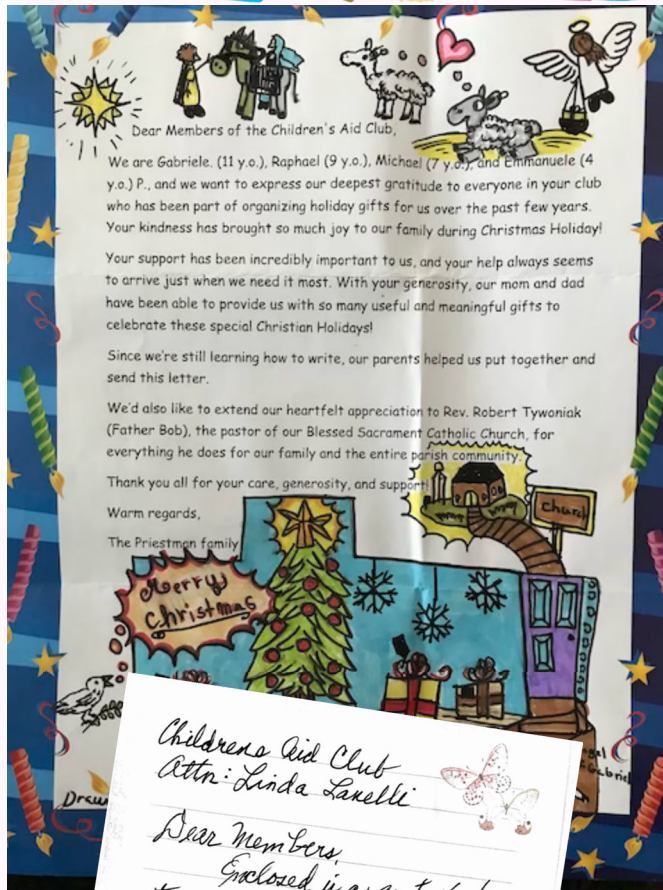 Dear Members of the Children's Aid Club,
We are Gabriele. (11 y.o.), Raphael (9 y.o.), Michael (7 y.o.), and Emmanuele (4
y.o.) P., and we want to express our deepest gratitude to everyone in your club
who has been part of organizing holiday gifts for us over the past few years.
Your kindness has brought so much joy to our family during Christmas Holiday!
Your support has been incredibly important to us, and your help always seems
to arrive just when we need it most. With your generosity, our mom and dad
have been able to provide us with so many useful and meaningful gifts to
celebrate these special Christian Holidays!
Since we're still learning how to write, our parents helped us put together and
send this letter.
We'd also like to extend our heartfelt appreciation to Rev. Robert Tywoniak
(Father Bob), the pastor of our Blessed Sacrament Catholic Church, for
everything he does for our family and the entire parish community.
Thank you all for your care, generosity, and support!
Warm regards,
The Priestman family
Church
Merry
Christmas
Gabriel
Childrens Aid Club
Attn: Linda Lanelli
Dear Members,
Enclosed is